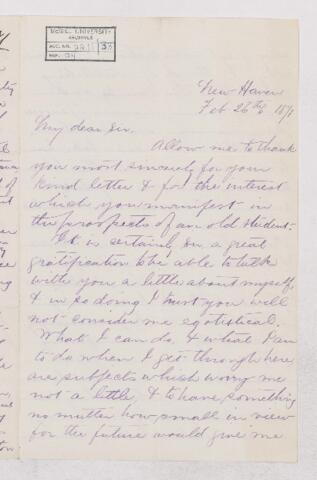 McGILL UNIVERSITY
ARCHIVES
ACC. NO.
REF.
New Haven
Feb 26th 1871
My dear Sir.
Allow me to thank
you most sincerely for your
kind letter & for the interest
which you manifest in
the prospects of an old student.
It is certainly, Sir, a great
gratification to be able to talk
with you a little about myself,
& in so doing I trust you will
not consider me egotistical.
What I can do, & what I am
to do when I get through here
are subjects which worry me
not a little, & to have something
no matter how small in view
for the future would give me